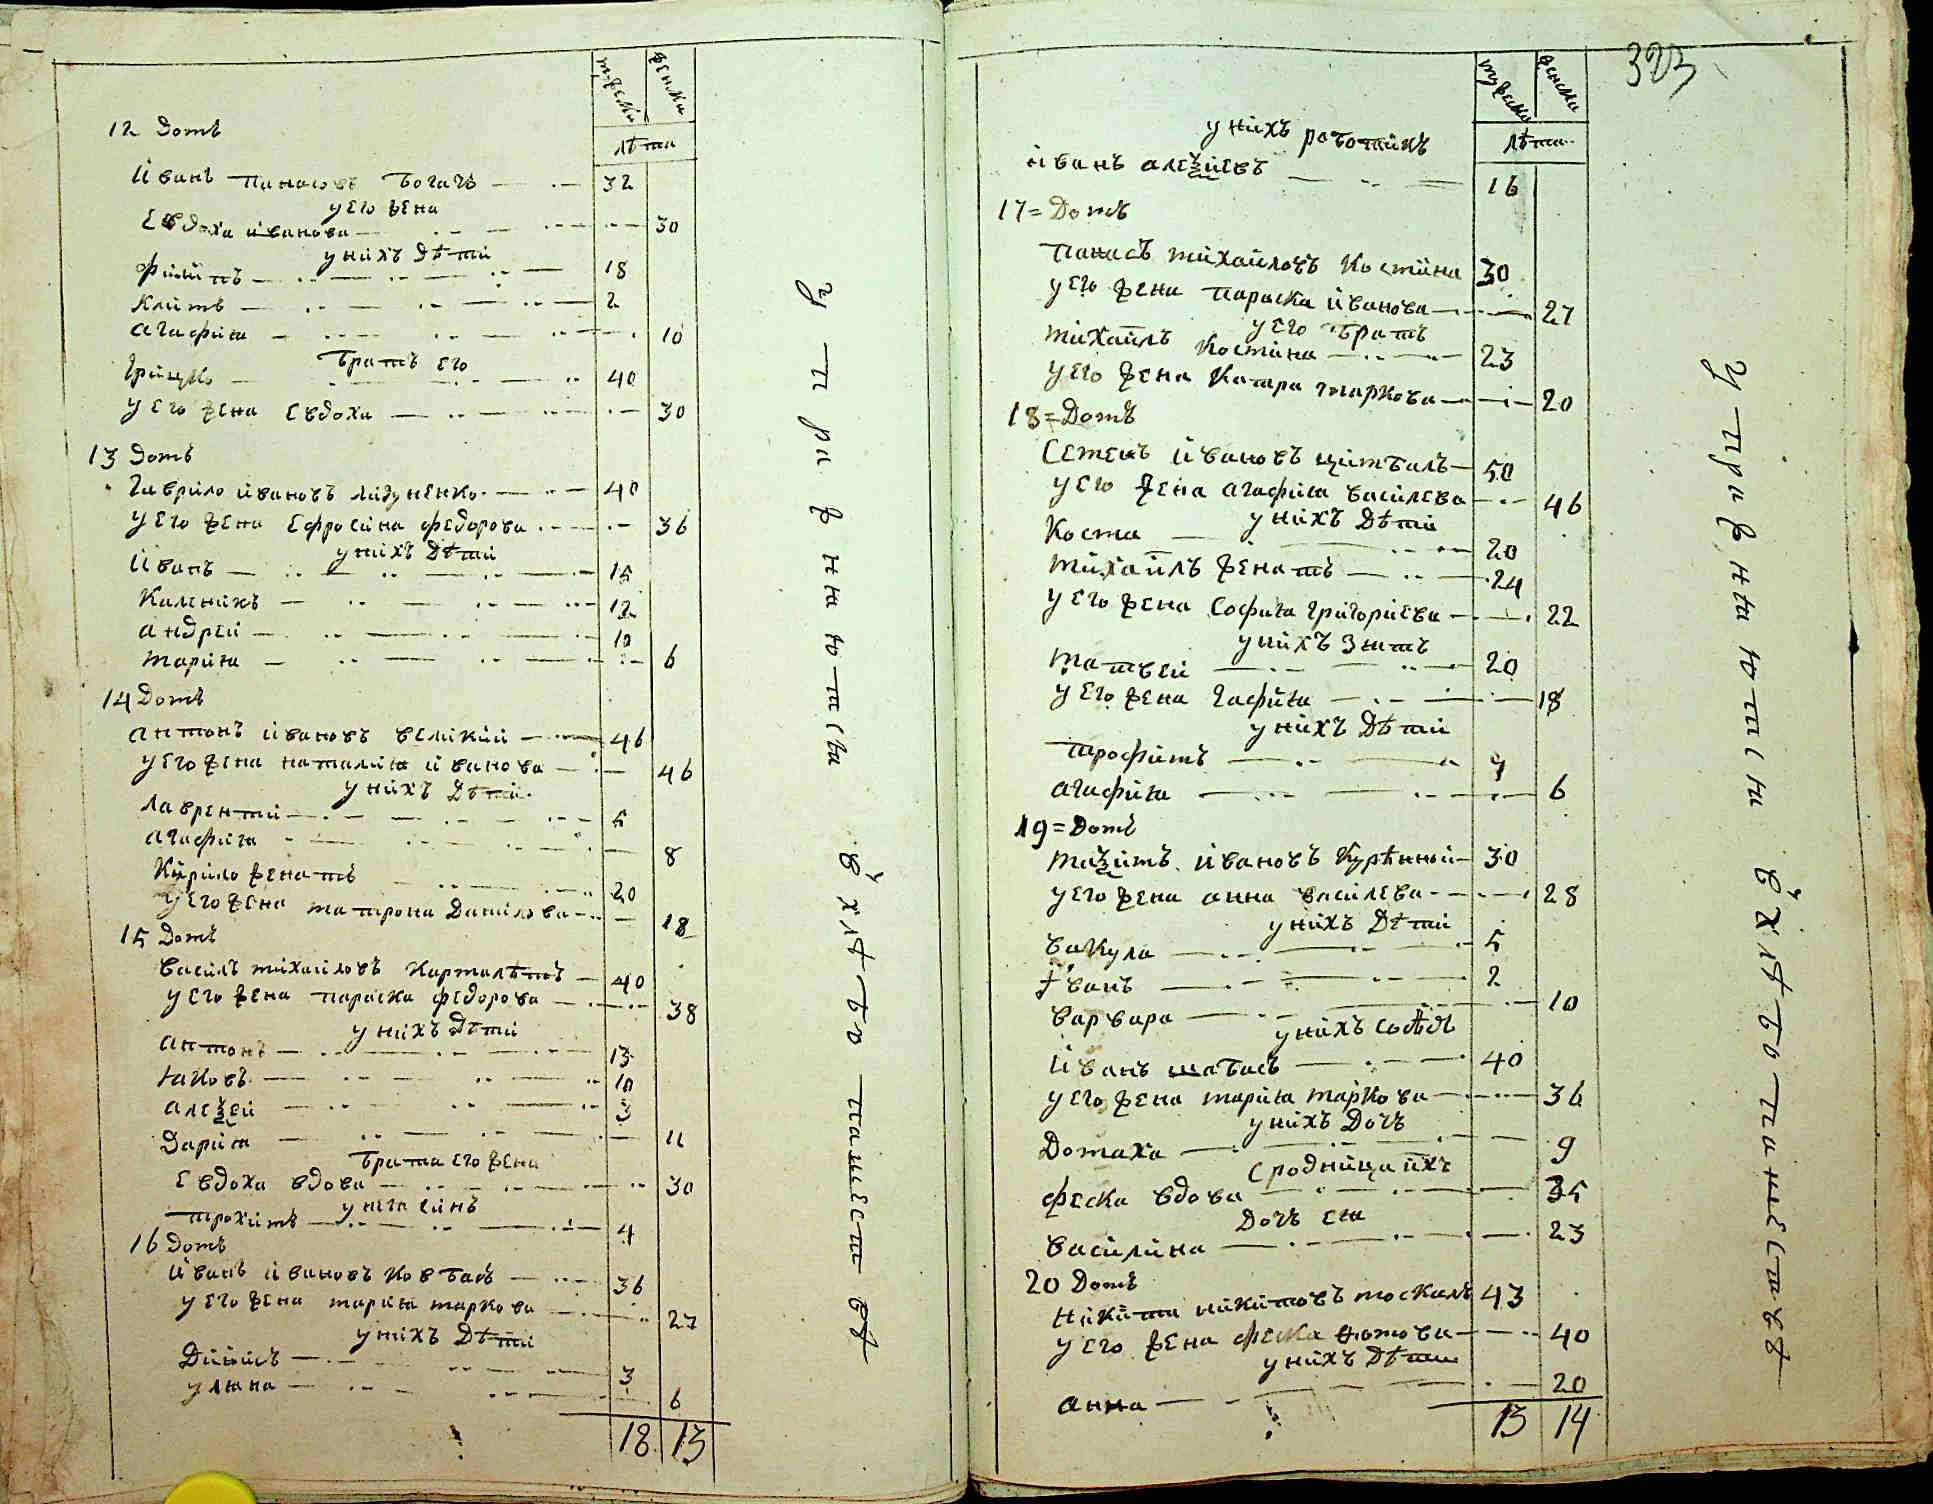 мужески
женски
лѣта
12 Домъ
Иванъ Панасовъ Богачъ 32
у его жена
Евдоха Иванова 30
у нихъ Дѣти
Филипъ 18
Климъ 2
Агафия 10
Братъ его
Грицко 40
у его жена Евдоха 30
13 Домъ
Гаврило Ивановъ 40
у его жена Ефросина Федорова 36
у нихъ Дѣти
Иванъ 15
Каленикъ 12
Андрей 10
Мария 6
14 Домъ
Антонъ Ивановъ Великий 46
у его жена Наталия Иванова 46
у нихъ Дѣти
Лаврентий 5
Агафия 8
Кирило женатъ 20
у его жена Матрона Данилова 18
15 Домъ
Василъ Михайловъ 40
у его жена Параска Федорова 38
у нихъ Дѣти
Антонъ 13
Яковъ 10
Алеѯей 3
Дария 11
Брата его жена
Евдоха вдова 30
у нея синъ
Трохимъ 4
16 Домъ
Иванъ Ивановъ Ковбасъ 36
у его жена Мария Маркова 27
у нихъ Дѣти
3
Уляна 6
18 13
упражняются
въ хлѣбопашествѣ
323
мужески
женски
лѣта
у нихъ роботникъ
Иванъ Алеѯиевъ 16
17 = Домъ
Панасъ Михайловъ Костина 30
у его жена Параска Иванова 27
у его братъ
Михайлъ Костина 23
у его жена Катра Маркова 20
18 = Домъ
Семенъ Ивановъ Цимбалъ 50
у его жена Агафия Василева 46
у нихъ Дѣти
Коста 20
Михайлъ женатъ 24
у его жена София Григориева 22
у нихъ Зять
Матвей 20
у его жена Гафия 18
у нихъ Дѣти
Трофимъ 9
Агафия 6
19 = Домъ
Маѯимъ Ивановъ Курѣнной 30
у его жена Анна Василева 28
у нихъ Дѣти
Вакула 5
Иванъ 2
Варвара 10
у нихъ сосѣдъ
Иванъ Шабасъ 40
у его жена Мария Маркова 36
у нихъ Дочъ
Домаха 9
Сродница ихъ
Феска вдова 35
Дочъ ея
Василина 23
20 Домъ
Никита Никитовъ Москалъ 43
у его жена Феска 40
у нихъ Дѣти
Анна 20
13 14
упражняются
въ хлѣбопашествѣ